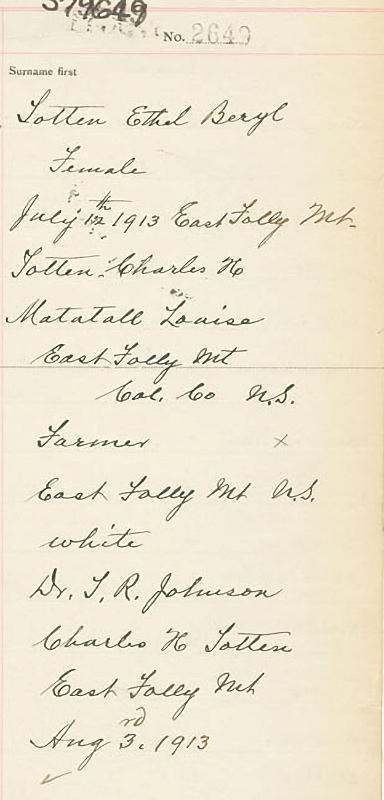 379649
No. 2649
Surname first
Totten Ethel Beryl
Female
July 12th 1913 East Folly Mt.
Totten Charles H
Matatall Louise
East Folly Mt
Col. Co N.S.
Farmer x
East Folly Mt N.S.
white
Dr. T. R. Johnson
Charles H Totten
East Folly Mt
Aug 3rd. 1913